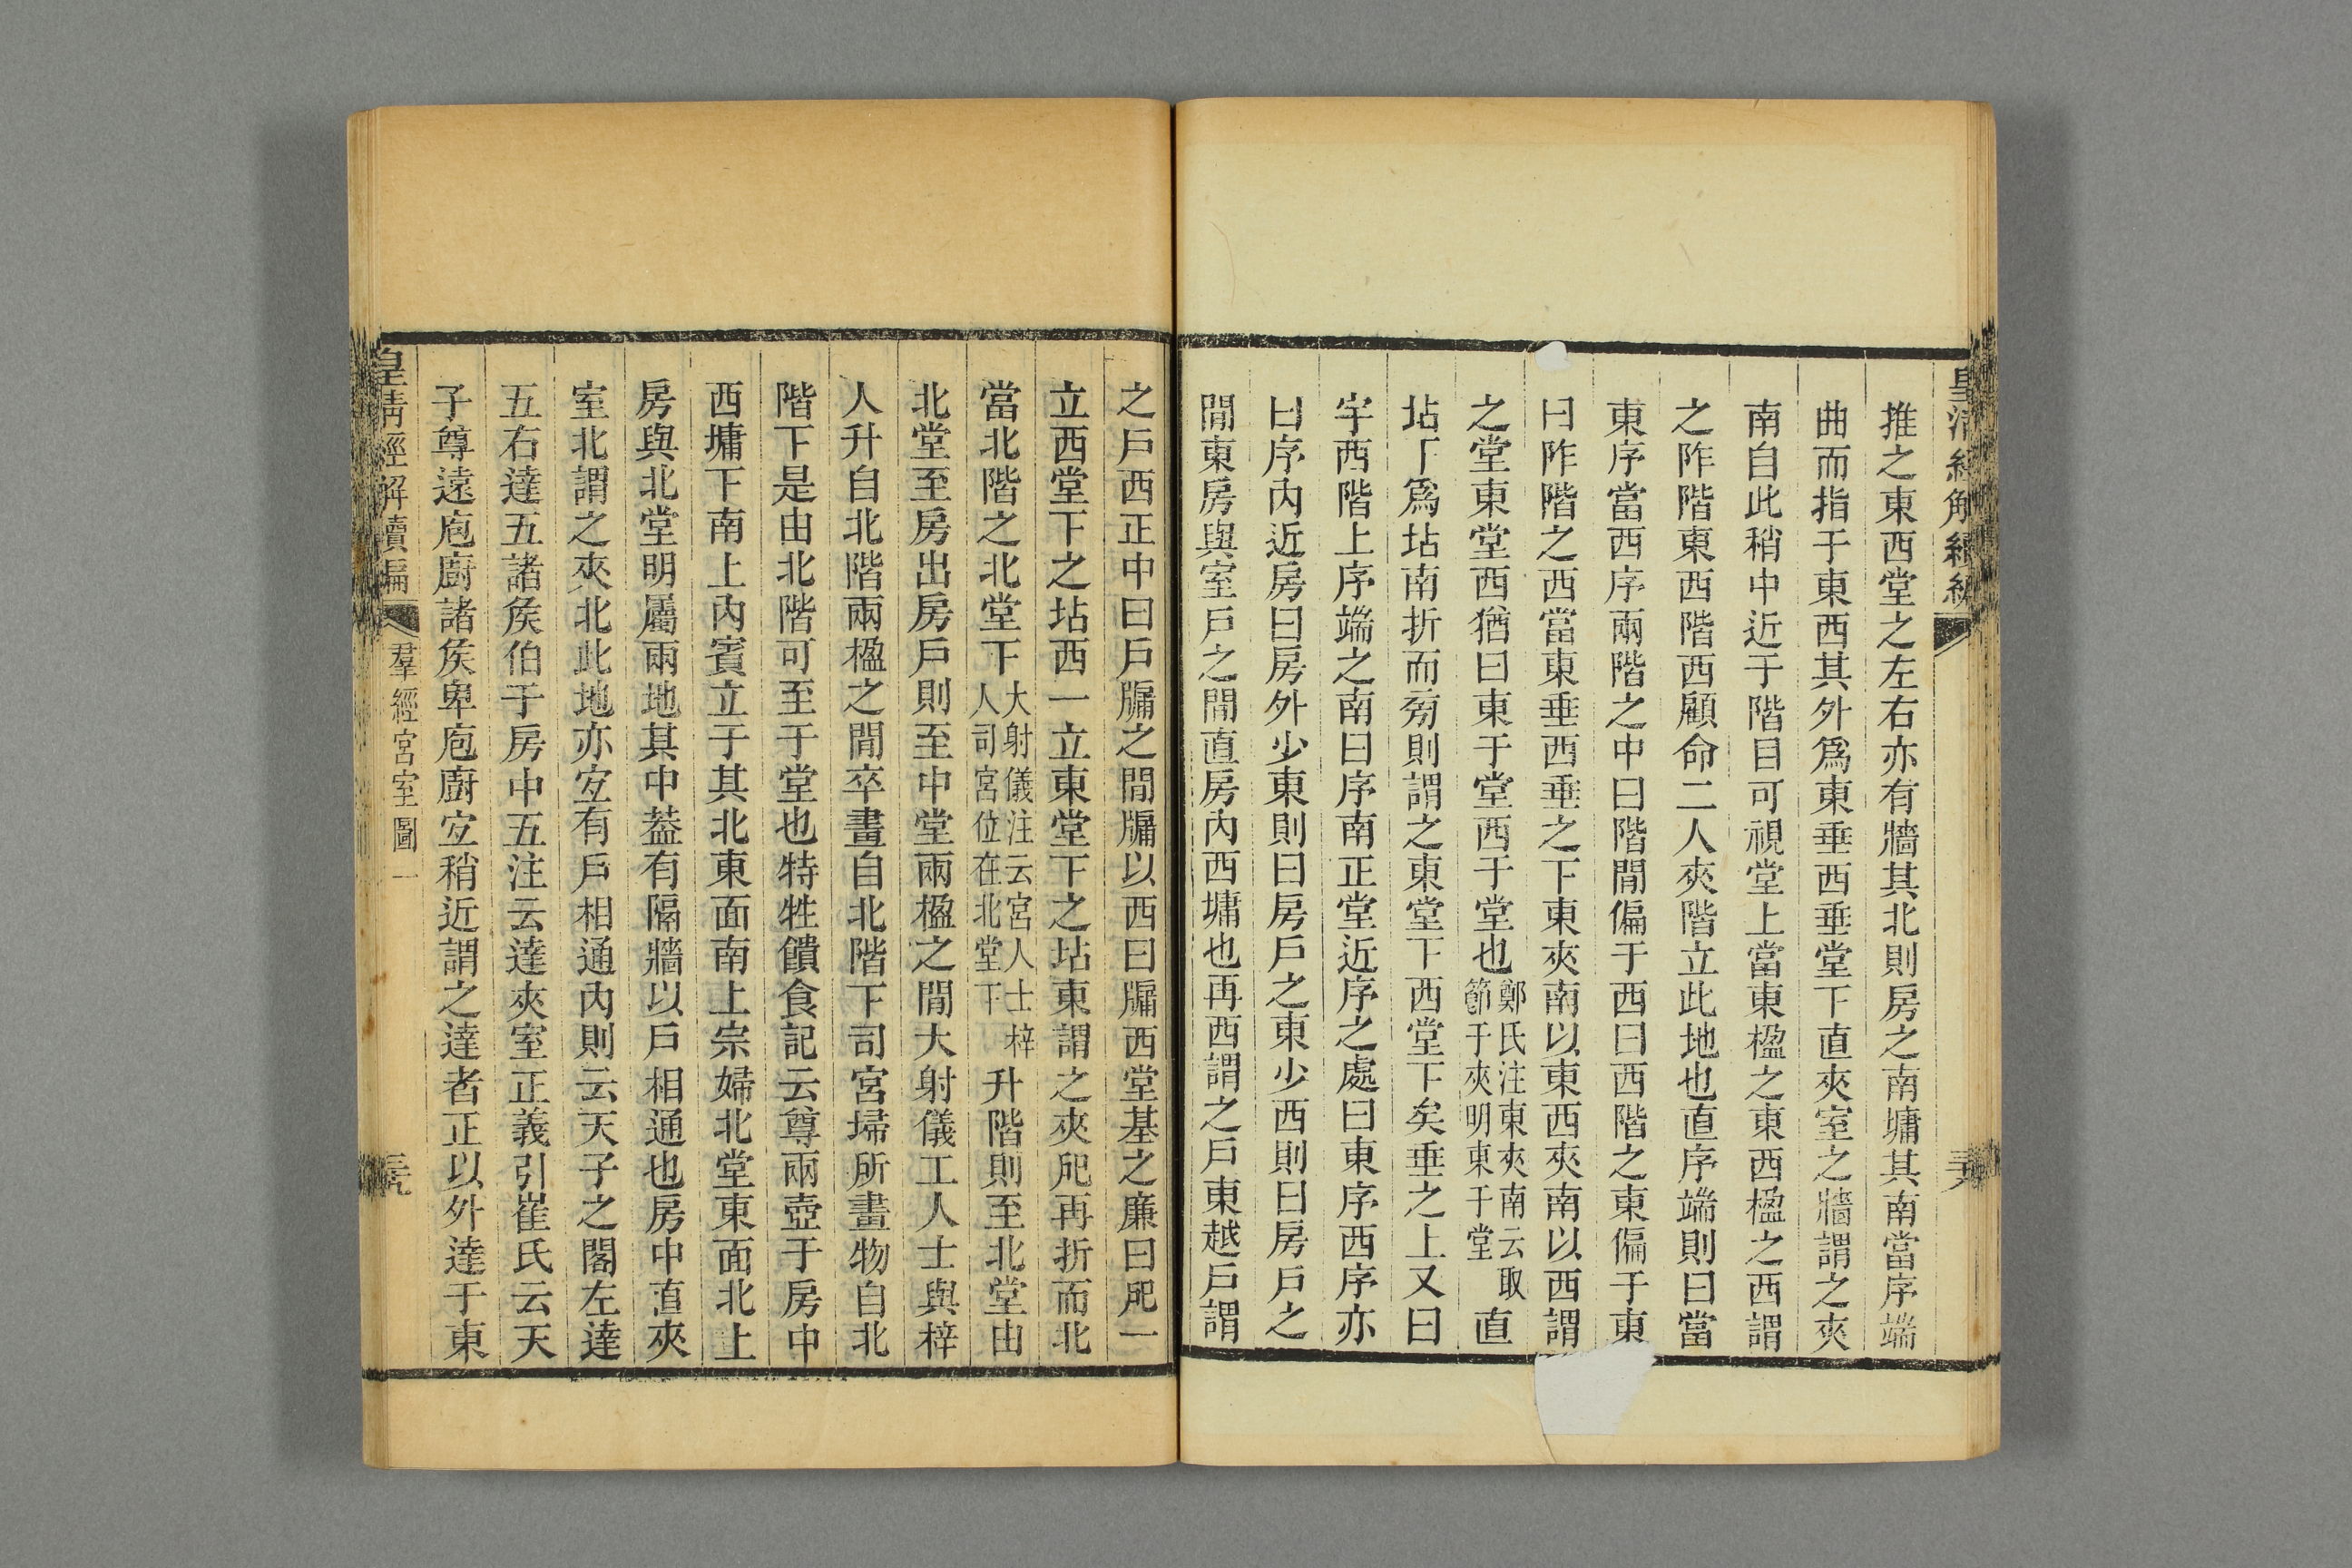 皇清經解續編
推之東西堂之左右亦有牆其北則房之南墉其南當序端
曲而指于東西其外爲東垂西垂堂下直夾室之牆謂之夾
南自此稍中近于階目可視堂上當東楹之東西楹之西謂
之阼階東西階西顧命二人夾階立此地也直序端則曰當
東序當西序兩階之中曰階閒偏于西曰西階之東偏于東
曰阼階之西當東垂西垂之下東夾南以東西夾南以西謂
之堂東堂西猶曰東于堂西于堂也鄭氏注東夾南云取節于夾明東于堂直
坫下爲坫南折而旁則謂之東堂下西堂下矣垂之上又曰
宇西階上序端之南曰序南正堂近序之處曰東序西序亦
曰序內近房曰房外少東則曰房戶之東少西則曰房戶之
閒東房與室戶之閒直房內西墉也再西謂之戶東越戶謂
之戶西正中曰戶牖之閒牖以西曰牖西堂基之廉曰戺一
立西堂下之坫西一立東堂下之坫東謂之夾戺再折而北
當北階之北堂下大射儀注云宮人士梓人司宮位在北堂下升階則至北堂由
北堂至房出房戶則至中堂兩楹之閒大射儀工人士與梓
人升自北階兩楹之閒卒畫自北階下司宮埽所畫物自北
階下是由北階可至于堂也特牲饋食記云尊兩壺于房中
西墉下南上內賓立于其北東面南上宗婦北堂東面北上
房與北堂明屬兩地其中葢有隔牆以戶相通也房中直夾
室北謂之夾北此地亦宐有戶相通內則云天子之閣左達
五右達五諸矦伯于房中五注云達夾室正義引崔氏云天
子尊遠庖廚諸矦卑庖廚宐稍近謂之達者正以外達于東
皇清經解續編
羣經宮室圖一